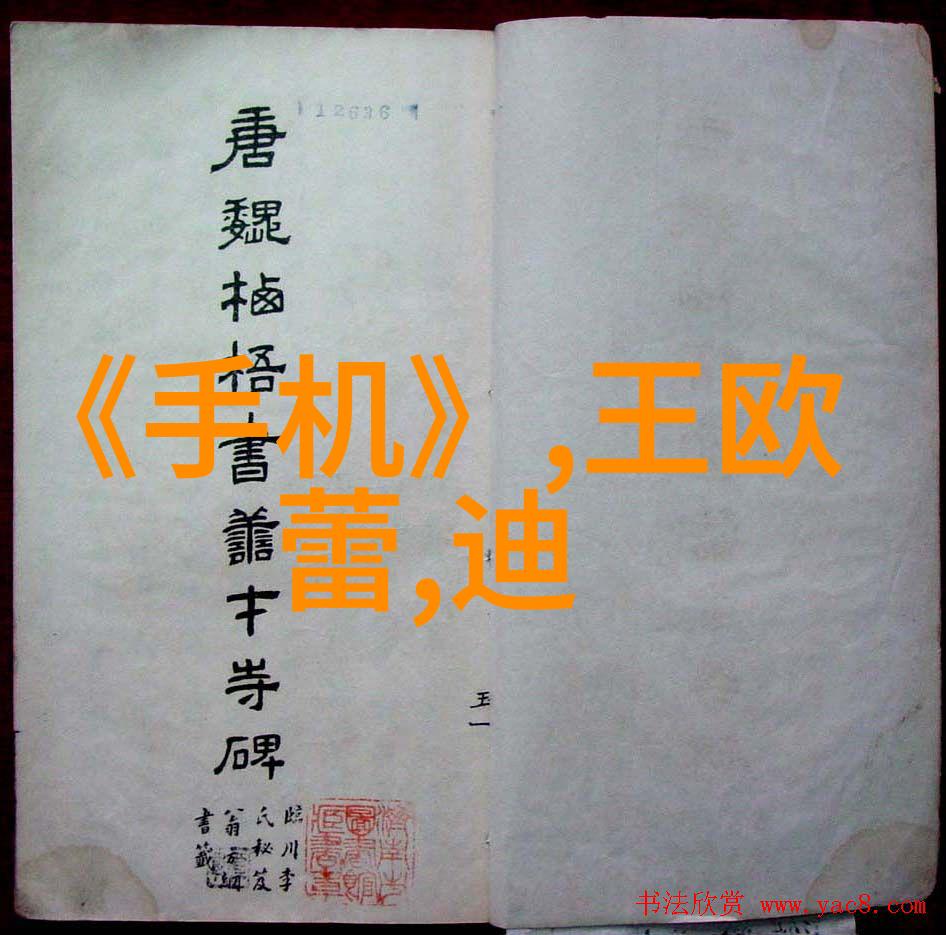 12636
唐魏栖梧書善才寺碑
臨川李
氏秘笈
翁方綱
書籤
王一
《手机》,王欧
蕾,迪
书法欣赏 www.yac8.com